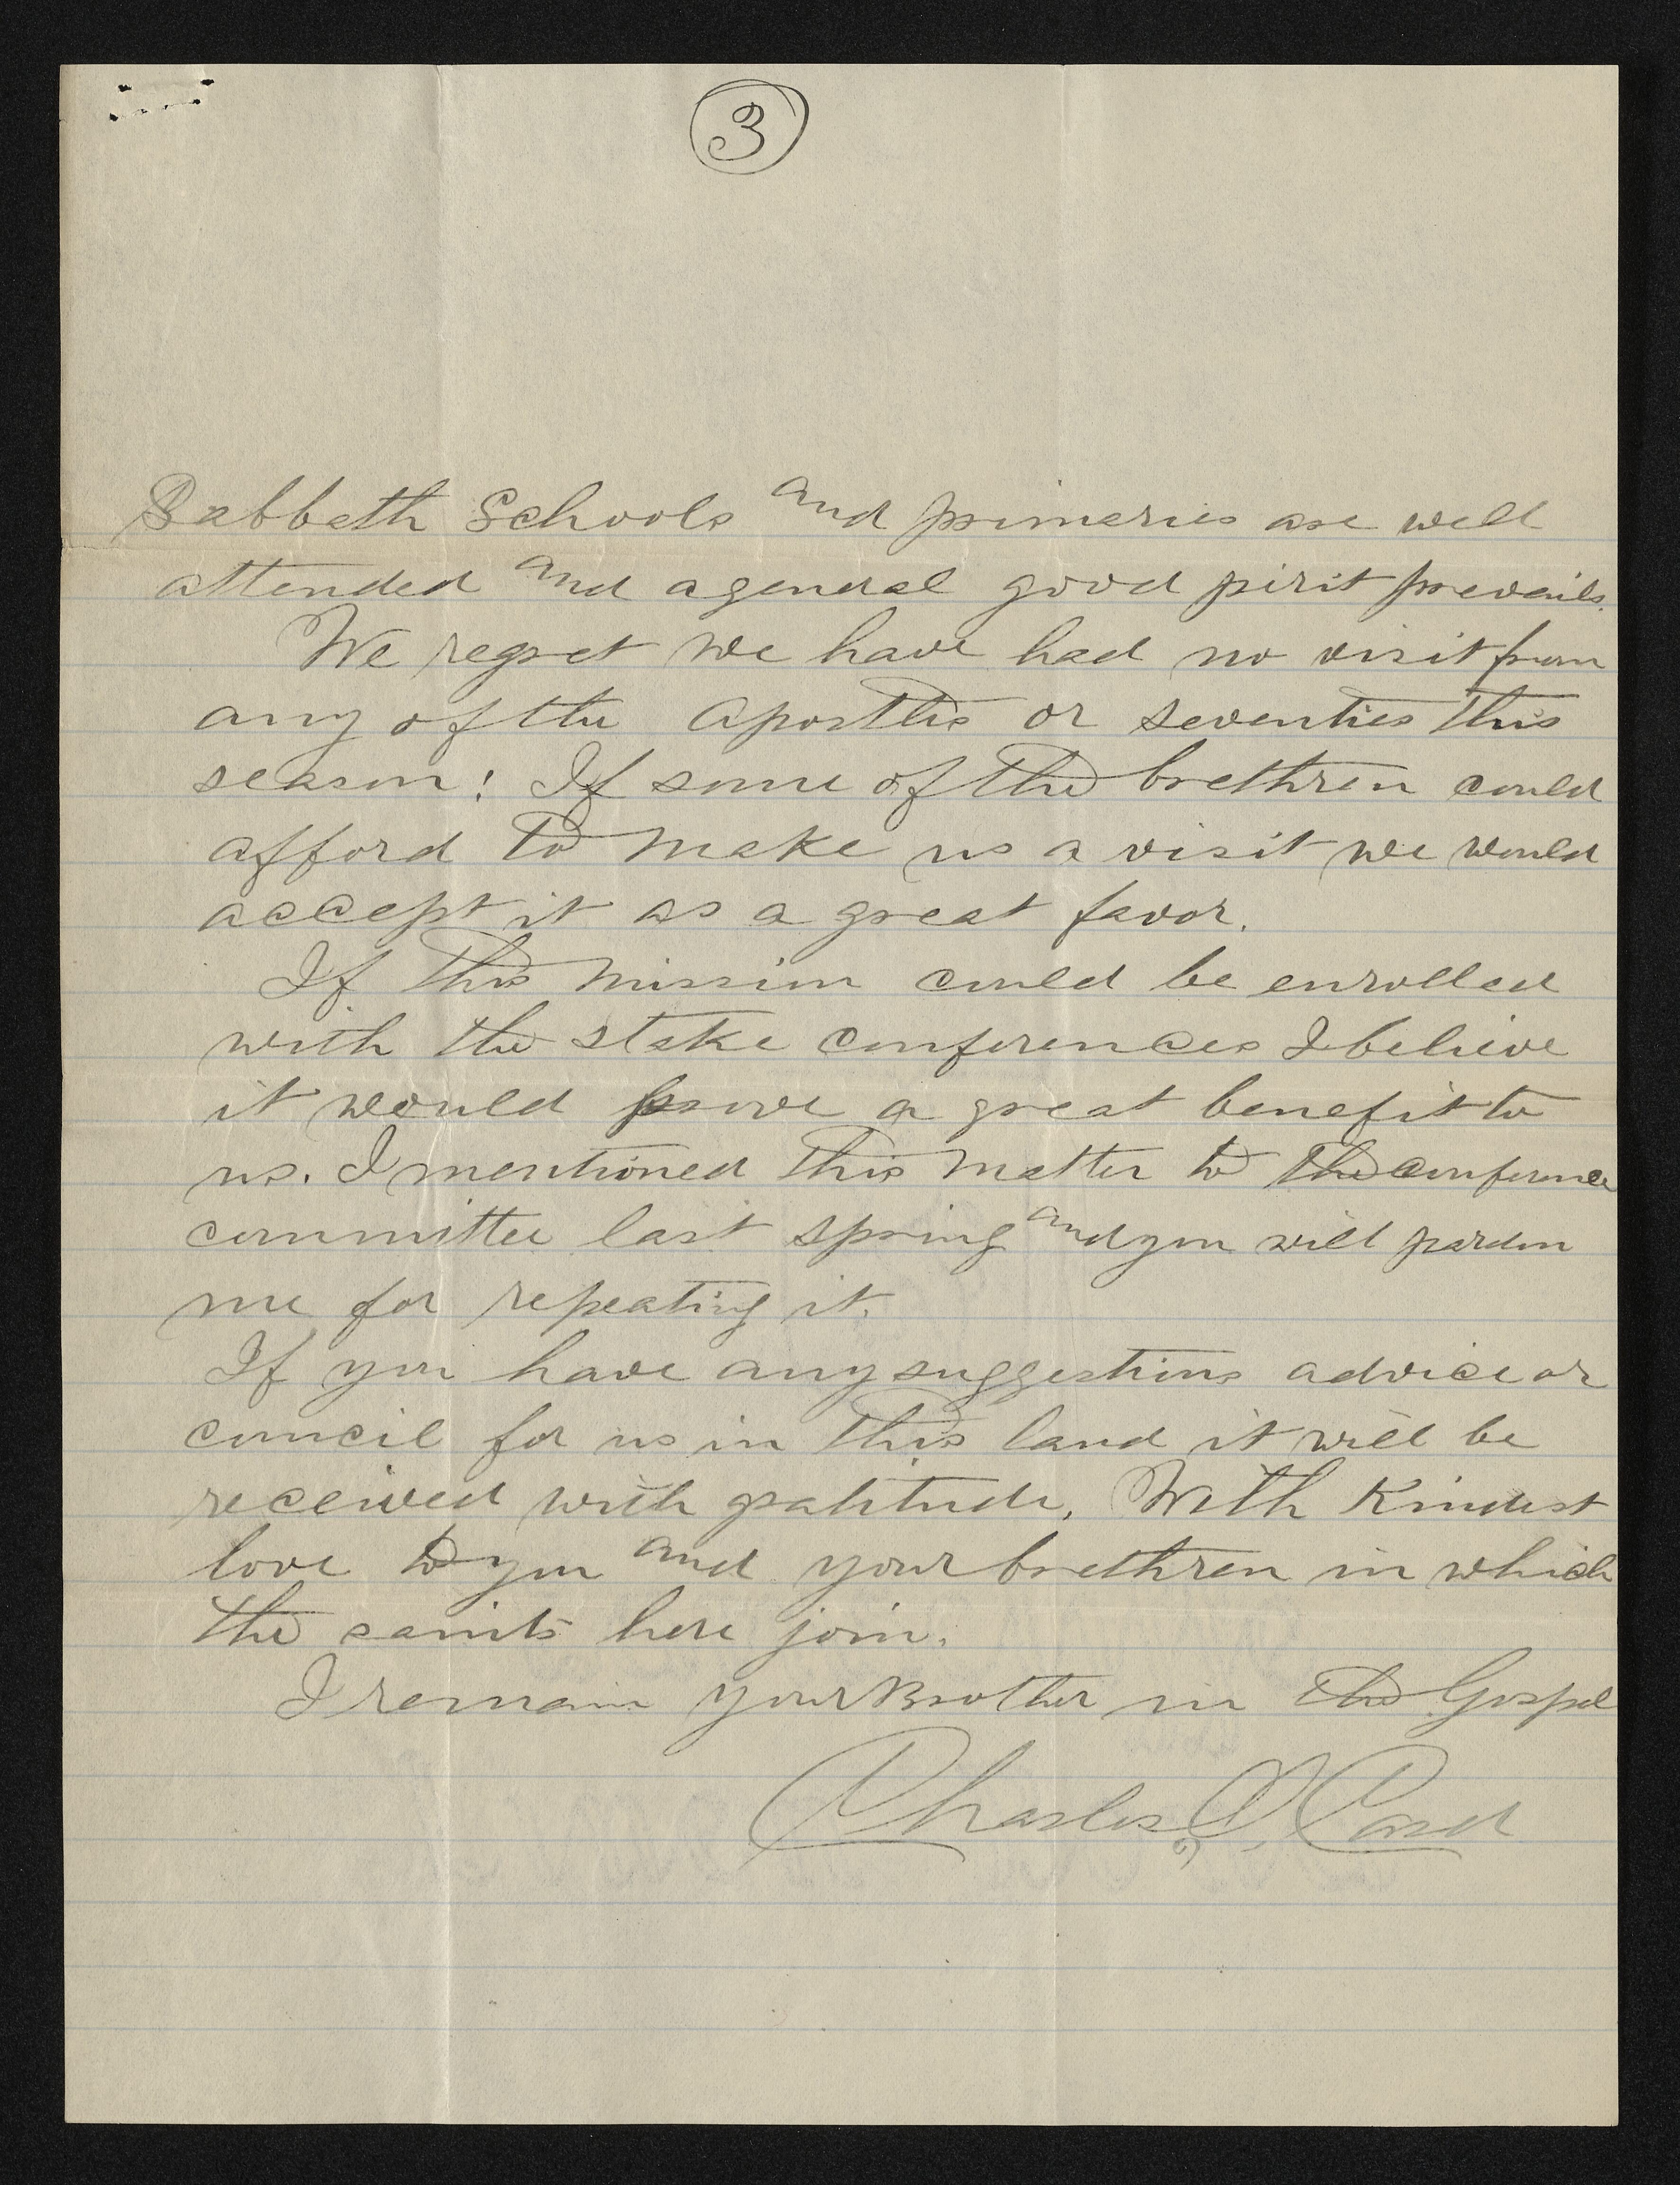 3
Sabbath Schools and primaries are well
attended and a general good pirit prevails.
We regret we have had no visit from
any of the Apostles or seventies this
season! If some of the brethren could
afford to make us a visit we would
accept it as a great favor.
If this mission could be enrolled
with the stake conferences I believe
it would prove a great benefit to
us. I mentioned this matter to the conference
committee last spring and you will pardon
me for repeating it.
If you have any suggestions advice or
council for us in this land it will be
received with gratitude. With Kindest
love to you and your brethren in which
the saints here join.
I remain your Brother in the Gospel
Charles O. Card